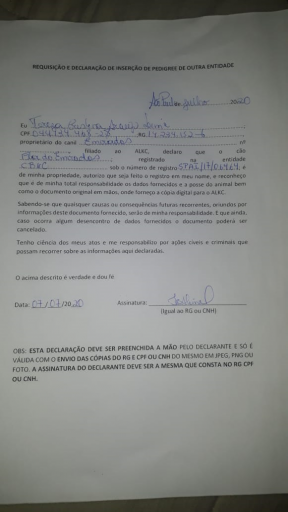 REQUISIÇÃO E DECLARAÇÃO DE INSERÇÃO DE PEDIGREE DE OUTRA ENTIDADE
São Paulo, julho 2020
Eu
CPF
proprietário do canil Emirados nº
filiado ao ALKC, declaro que o cão
registrado na entidade
CBKC sob o número de registro é
de minha propriedade, autorizo que seja feito o registro em meu nome, e reconheço
que é de minha total responsabilidade os dados fornecidos e a posse do animal bem
como o documento original em mãos, onde forneço a copia digital para o ALKC.
Sabendo-se que quaisquer causas ou consequências futuras recorrentes, oriundos por
informações deste documento fornecido, serão de minha responsabilidade. E que ainda,
caso ocorra algum desencontro de dados fornecidos o documento poderá ser
cancelado.
Tenho ciência dos meus atos e me responsabilizo por ações cíveis e criminais que
possam recorrer sobre as informações aqui declaradas.
O acima descrito é verdade e dou fé
Data: 07/07/2020 Assinatura:
(Igual ao RG ou CNH)
OBS: ESTA DECLARAÇÃO DEVE SER PREENCHIDA A MÃO PELO DECLARANTE E SÓ É
VÁLIDA COM O ENVIO DAS CÓPIAS DO RG E CPF OU CNH DO MESMO EM JPEG, PNG OU
FOTO. A ASSINATURA DO DECLARANTE DEVE SER A MESMA QUE CONSTA NO RG CPF
OU CNH.